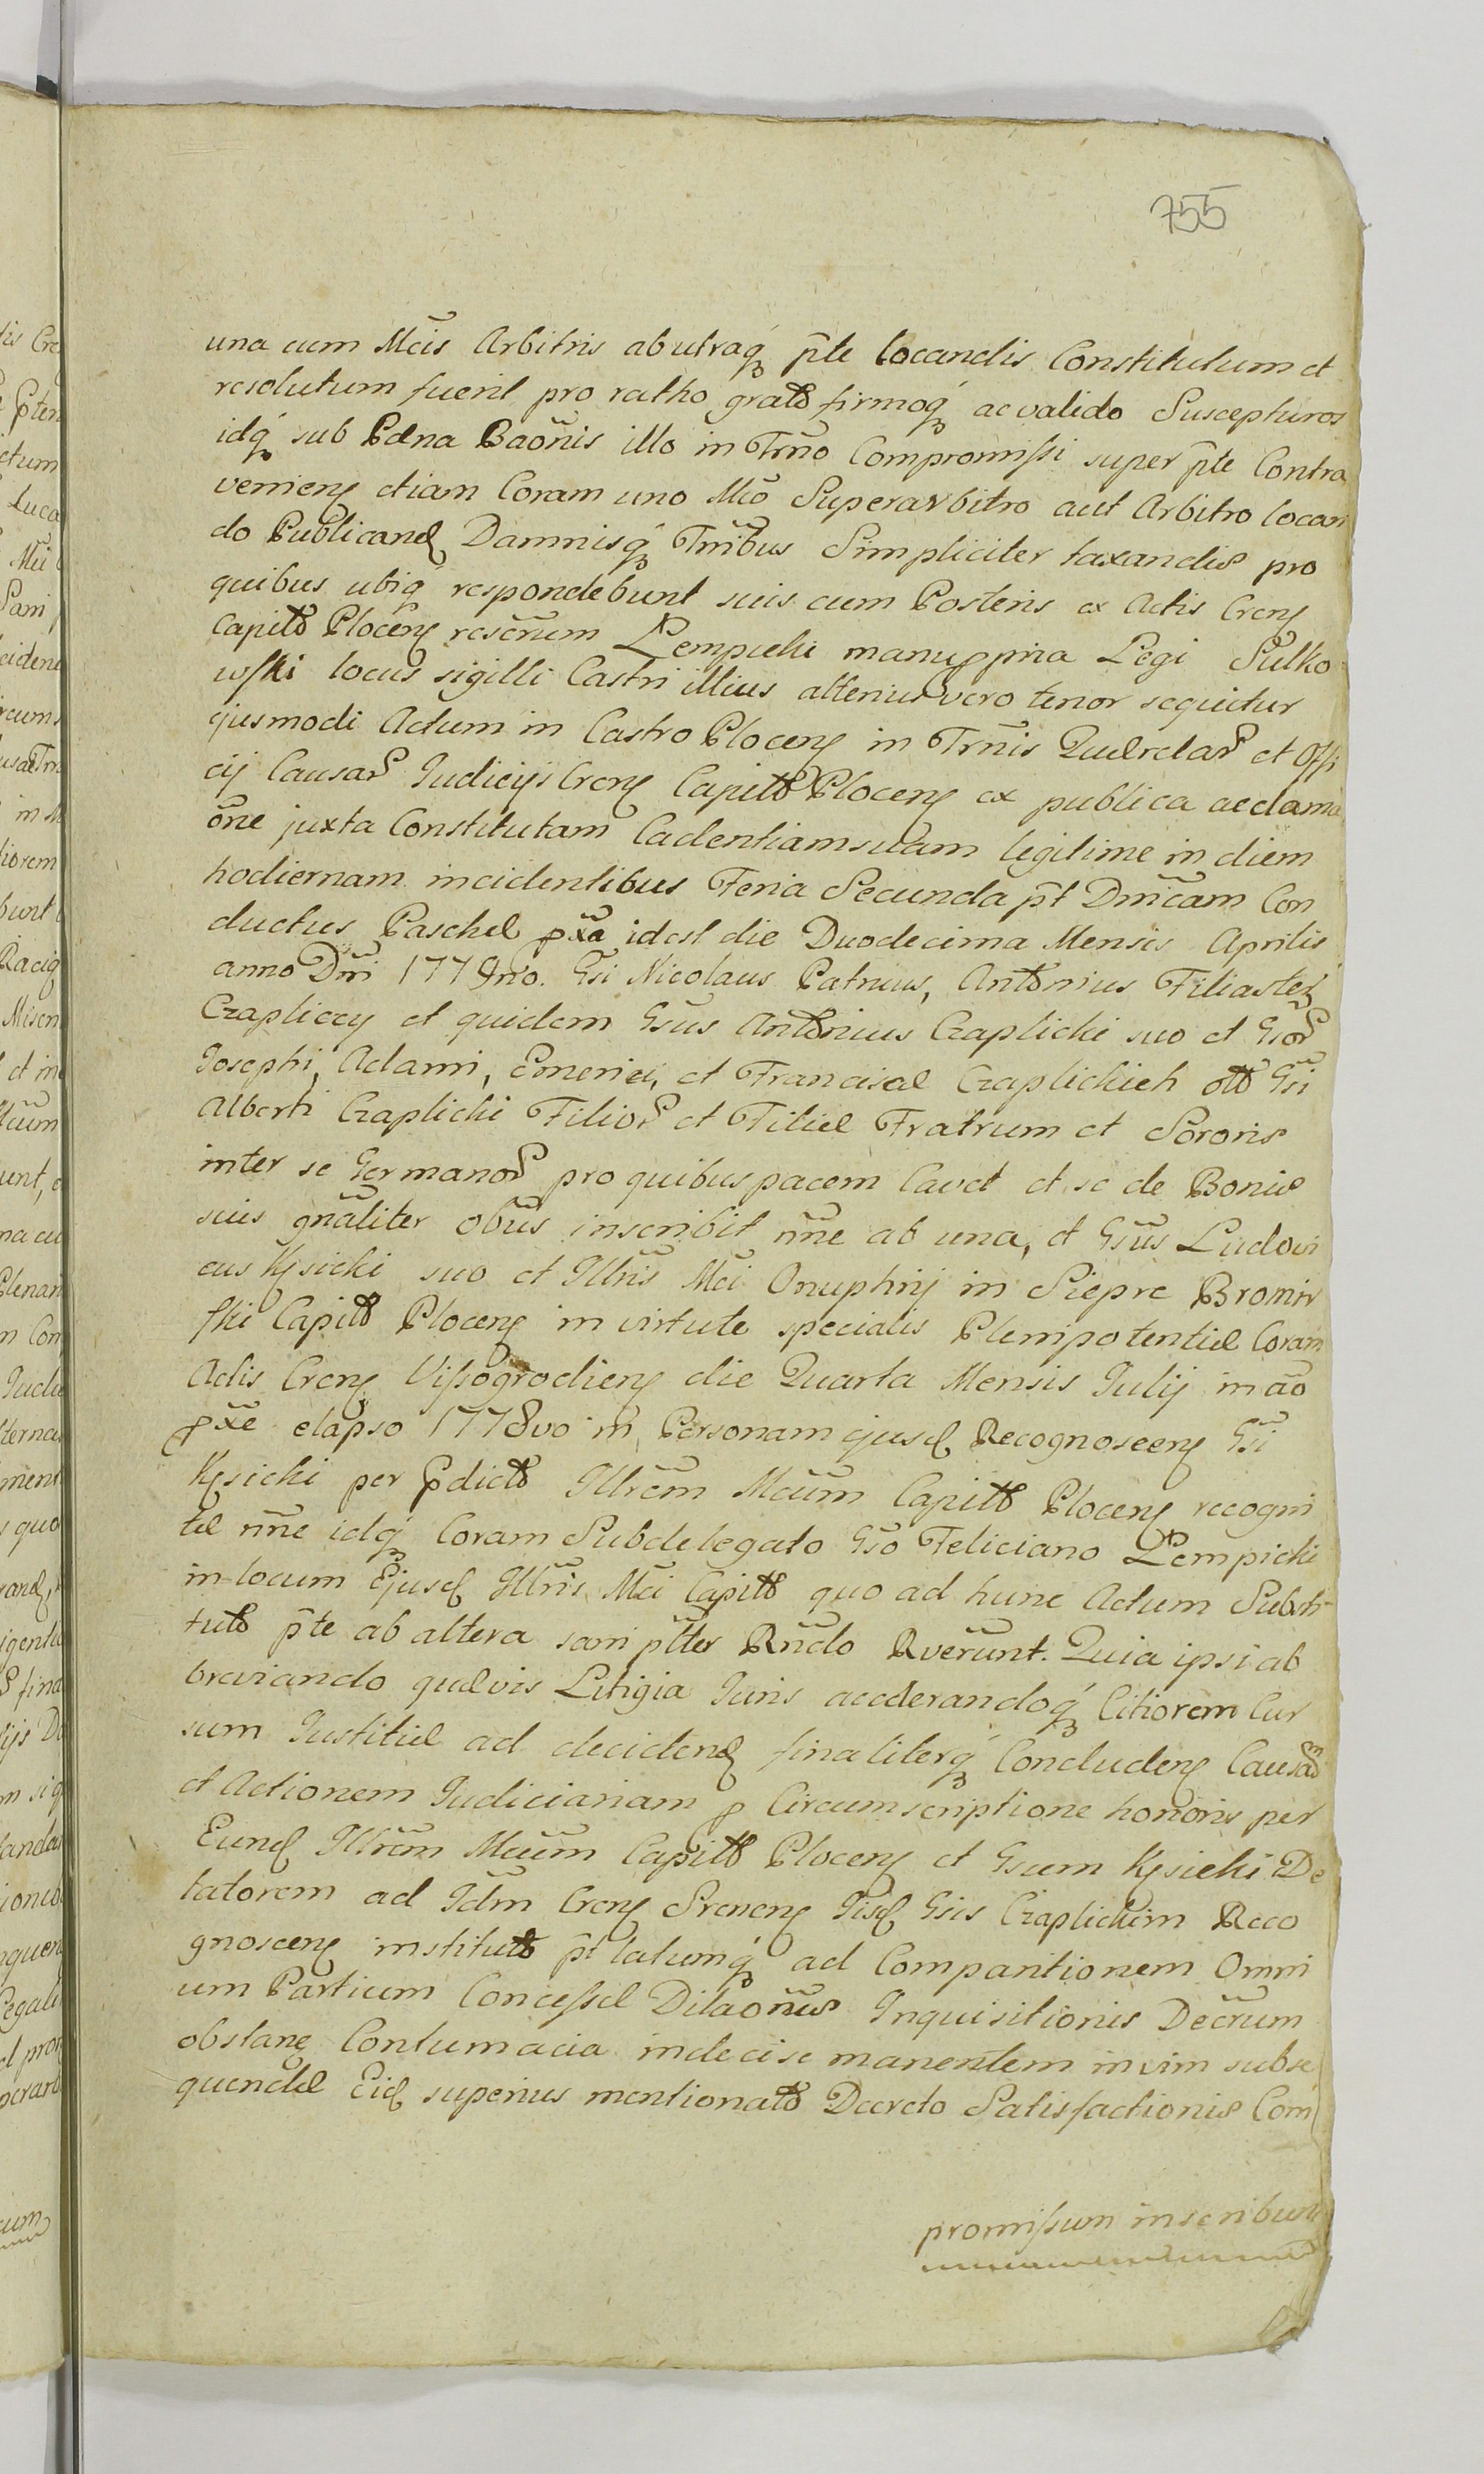 755
una cum Mcis Arbitris ab utraq́ p̃te locandis Constitutum et
resolutum fuerit pro ratho grato firmoq́ ac valido Suscepturos
idq́ sub Pæna Baõnis illo in Trño Compromissi super p̃te Contra
veniens etiam Coram uno Mcõ Superarbitro aut Arbitro locan
do Publicand Damnisq́ Trñibus Simpliciter taxandis pro
quibus ubiq́ respondebunt suis cum Posteris ex Actis Crens
Capit Plocens rescrum Lempicki manu ppria Legi Sulko
wski locus sigilli Castri illius alterius vero tenor sequitur
ejusmodi Actum in Castro Plocens in Trñis Quærelar et Offi
cij Causar Judicijs Crens Capit Plocens ex publica acclama
õne juxta Constitutam Cadentiam suam legitime in diem
hodiernam incidentibus Feria Secunda p̃t Dñicam Con
ductus Paschæ pxa idest die Duodecima Mensis Aprilis
anno Dñi 1779no. Gsi Nicolaus Patruus, Antonius Filiaster
Czapliccy et quidem Gsus Antonius Czaplicki suo et Gsor
Josephi, Adami, Emerici, et Francisæ Czaplickich ol Gsi
Alberti Czaplicki Filior et Filiæ Fratrum et Sororis
inter se Germanor pro quibus pacem Cavet et se de Bonis
suis gñaliter obũs inscribit ñne ab una, et Gsũs Ludovi
cus Kęsicki suo et Illris Mci Onuphrij in Siepre Bromir
ski Capit Plocens in virtute specialis Plenipotentiæ Coram
Actis Crens Vissogrodiens die Quarta Mensis Julij in aõ
pxe elapso 1778vo in Personam ejusd Recognoscens Gsi
Kęsicki per Pdict Illrem Mcum Capit Plocens recogni
tæ ñne idq́ Coram Subdelegato Gso Feliciano Lempicki
in locum Ejusd Illris Mci Capit quo ad hunc Actum Substi-
tut p̃te ab altera sani p̃tter Rñdo Rverunt. Quia ipsi ab
breviando quævis Litigia Juris accelerandoq́ Citiorem Cur
sum Justitiæ ad decidend finaliterq́ Concludens Causam
et Actionem Judiciariam p Circumscriptione honoris per
Eund Illrem Mcum Capit Plocens et Gsum Kęsicki De
latorem ad Jdm Crens Srenens Jisd Gsis Czaplickim Reco
gnoscens institut p̃t latumq́ ad Comparitionem Omni
um Partium Concessæ Dilaõnis Inquisitionis Decrum
obstane Contumacia indecise manentem in vim subse
quendæ Eid superius mentionat Decreto Satisfactionis Com
promissum inscribunt